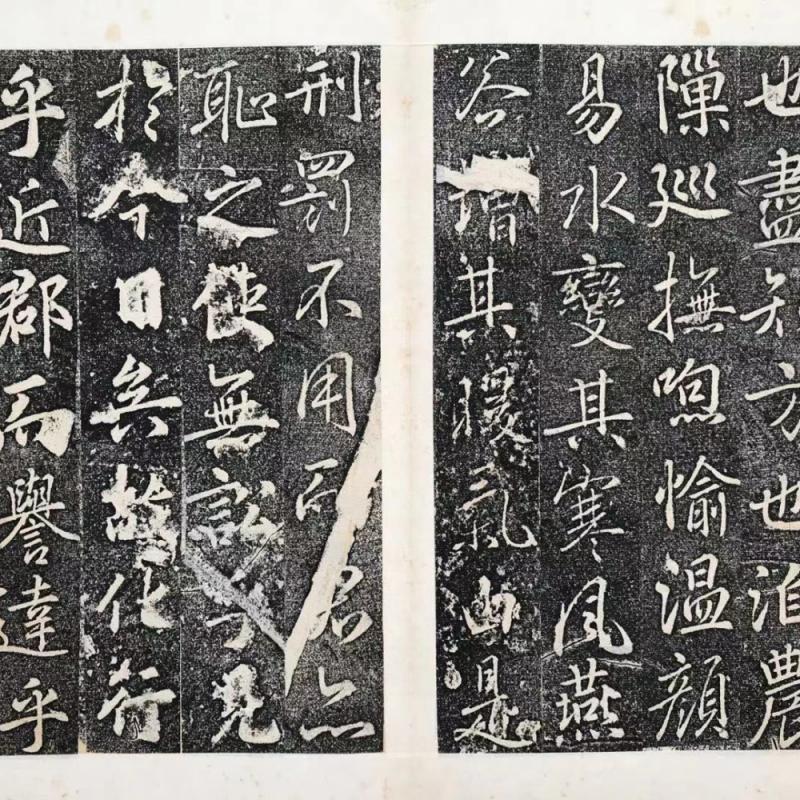 也盡知方也洎農
隟廵撫喣愉温顔
易水變其寒風燕
谷增其暖氣由是
刑罰不用而君亦
恥之使無訟乎見
於今日矣故化行
乎近郡而譽達乎